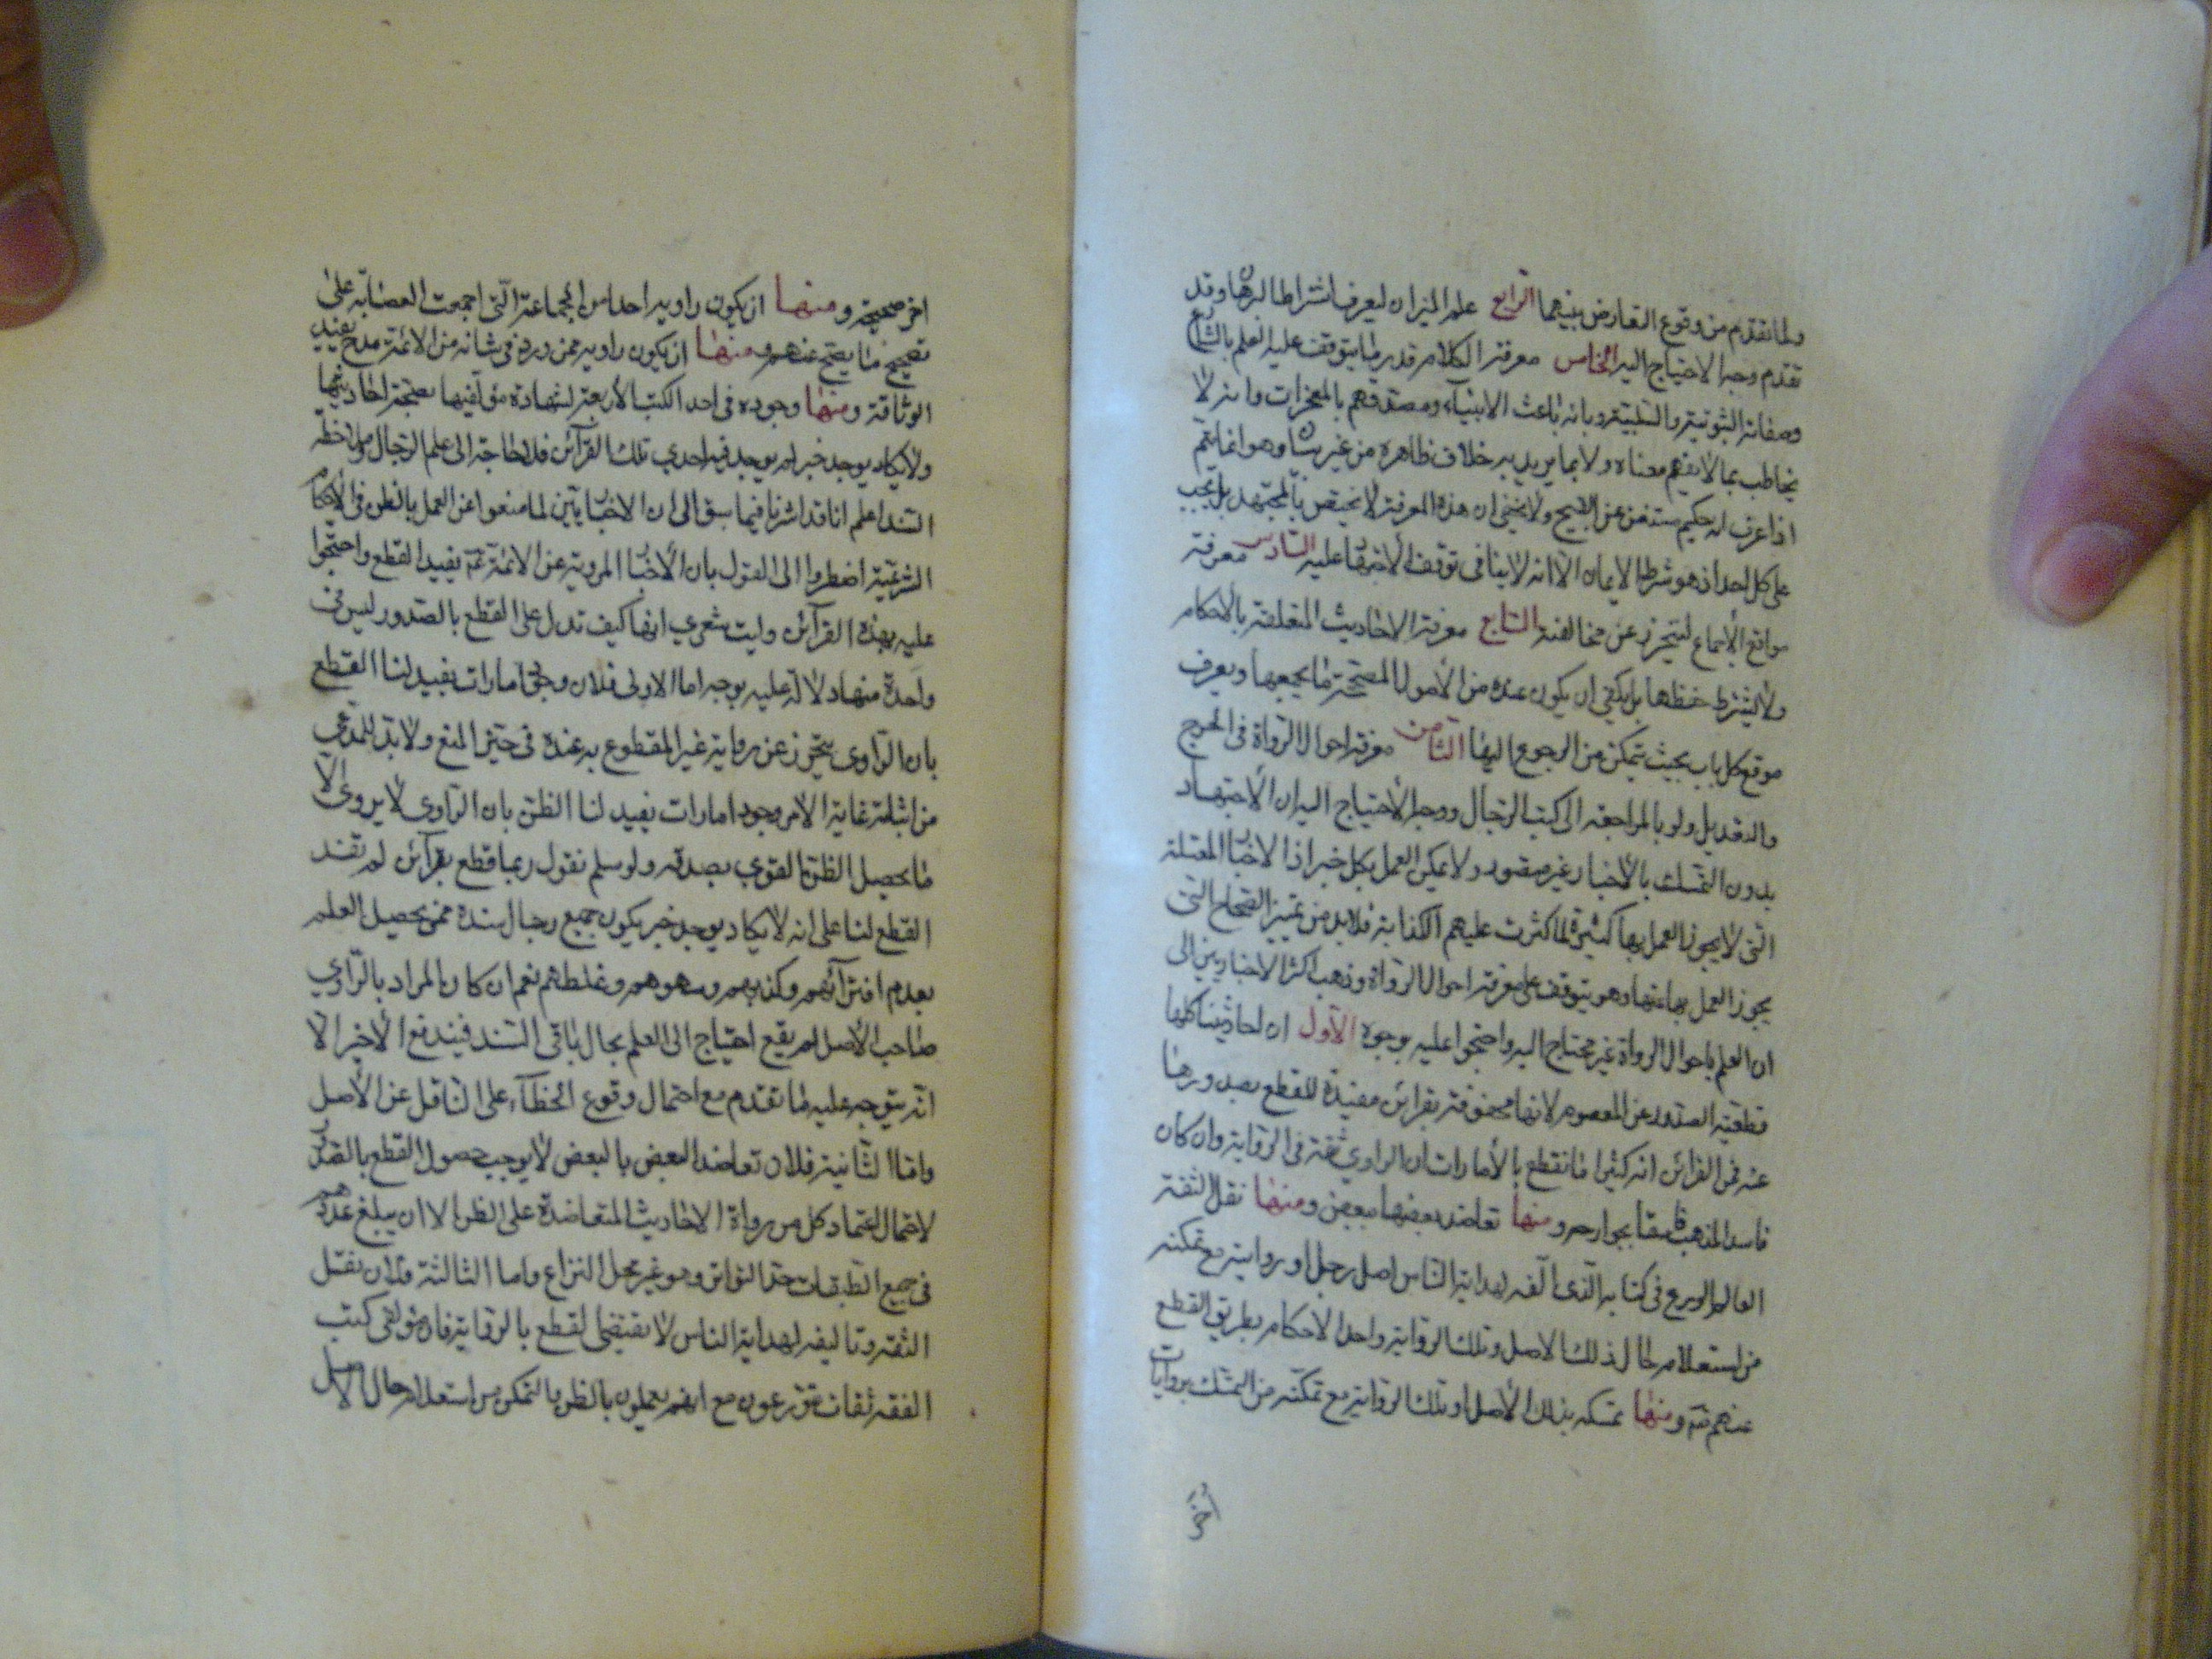 ولما تقدم من وقوع التعارض بينهما الرابع علم الميزان ليعرف شرائط البرهان وقد
تقدم وجه الاحتياج اليه الخامس معرفة الكلام قدر ما يتوقف عليه العلم بالشارع
وصفاته الثبوتية والسلبية وبانه باعث الانبياء ومصدقهم بالمعجزات وانه لا
يخاطب بما لا يفهم معناه ولا بما يريد به خلاف ظاهره من غير بيان وهو انما يتم
اذا عرف انه حكيم مستغن عن القبيح ولا يخفى ان هذه المعرفة لا يختص بالمجتهد بل تجب
على كل احد اذ هو شرط الايمان الا انه لا ينافى توقف الاجتهاد عليه السادس معرفة
مواقع الاجماع ليتحرز عن مخالفته السابع معرفة الاحاديث المتعلقة بالاحكام
ولا يشترط حفظها بل يكفى ان يكون عنده من الاصول المصححة ما يجمعها ويعرف
موقع كل باب بحيث يتمكن من الرجوع اليها الثامن معرفة احوال الرواة فى الجرح
والتعديل ولو بالمراجعة الى كتب الرجال ووجه الاحتياج اليه ان الاجتهاد
بدون التمسك بالاخبار غير مقصود ولا يمكن العمل بكل خبر اذ الاخبار المعتلة
التى لا يجوز العمل بها كثيرة لما كثرت عليهم الكذابة فلا بد من تمييز الصحاح التى
يجوز العمل بها عنها وهو يتوقف على معرفة احوال الرواة وذهب اكثر الاخباريين الى
ان العلم باحوال الرواة غير محتاج اليه واحتجوا عليه بوجوه الاول ان احاديثنا كلها
قطعية الصدور عن المعصوم لانها محفوفة بقرائن مفيدة للقطع بصدورها
عنه فمن القرائن انه كثيرا ما نقطع بالامارات ان الراوى ثقة فى الرواية وان كان
فاسد المذهب فاسقا بجوارحه ومنها تعاضد بعضها ببعض ومنها نقل الثقة
العالم الورع فى كتابه الذى الفه لهداية الناس اصل رجل او روايته مع تمكنه
من استعلام حال ذلك الاصل وتلك الرواية واخذ الاحكام بطريق القطع
عنهم ومنها تمسكه بذلك الاصل او بتلك الرواية مع تمكنه من التمسك بروايات
اخر
اخر صحيحة ومنها ان يكون راويه احدا من الجماعة التى اجمعت العصابة على
تصحيح ما يصح عنهم ومنها ان يكون راويه ممن ورد فى شانه من الائمة مدح يفيد
الوثاقة ومنها وجوده فى احد الكتب الاربعة لشهادة مؤلفيها بصحة احاديثها
ولا يكاد يوجد خبر لم يوجد فيه احدى تلك القرآئن فلا حاجة الى علم الرجال وملاحظة
السند اعلم انا قد اشرنا فيما سبق الى ان الاخباريين لما منعوا عن العمل بالظن فى الاحكام
الشرعية اضطروا الى القول بان الاخبار المروية عن الائمة يفيد القطع واحتجوا
عليه بهذه القرآئن وليت شعرى انها كيف تدل على القطع بالصدور ليس فى
واحدة منها دلالة عليه بوجه اما الاولى فلان وجود امارات يفيد لنا القطع
بان الراوى يتحرز عن رواية غير المقطوع به عنده فى حيز المنع ولا بد للمدعى
من اثباته غاية الامر وجود امارات يفيد لنا الظن بان الراوى لا يروى الا
ما يحصل الظن القوى بصدقه ولو سلم نقول ربما قطع بقرآئن لم تفند
القطع لنا على انه لا يكاد يوجد خبر يكون جميع رجال سنده ممن يحصل العلم
بعدم افترآئهم وكذبهم وسهوهم وغلطهم نعم ان كان المراد بالراوى
صاحب الاصل لم يقع احتياج الى العلم بحال باقى السند فيندفع الاخير الا
انه يتوجه عليه ما تقدم مع احتمال وقوع الخطآء على الناقل عن الاصل
واما الثانية فلان تعاضد البعض بالبعض لا يوجب حصول القطع بالصدور
لاحتمال اعتماد كل من رواة الاحاديث المتعاضدة على الظن الا ان يبلغ عددهم
فى جميع الطبقات حد التواتر وهو غير محل النزاع واما الثالثة فلان نقل
الثقة وتاليفه لهداية الناس لا يقتضى القطع بالرواية فان مؤلفى كتب
الفقه ثقات متورعون مع انهم يعملون بالظن والتمكن من استعلام حال الاصل